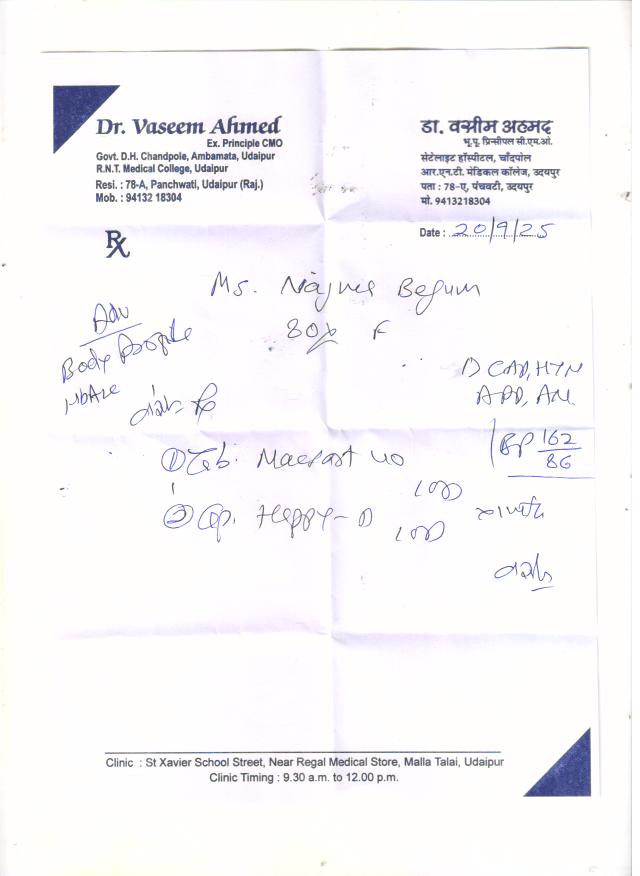 Dr. Vaseem Ahmed
Ex. Principle CMO
Govt. D.H. Chandpole, Ambamata, Udaipur
R.N.T. Medical College, Udaipur
Resi. : 78-A, Panchwati, Udaipur (Raj.)
Mob. : 94132 18304
डा. वसीम अहमद
भू.पू. प्रिन्सीपल सी.एम.ओ.
सेटेलाइट हॉस्पीटल, चाँदपोल
आर.एन.टी. मेडिकल कॉलेज, उदयपुर
पता : 78-ए, पंचवटी, उदयपुर
मो. 9413218304
Date : 20/9/25
Rx
Ms. Begum
F
Adv
Body
HbA1c
CAD, HTN
BP 162/86
① Tab. 40
1 OD
② Cap. Happy-D
1 OD
Clinic : St Xavier School Street, Near Regal Medical Store, Malla Talai, Udaipur
Clinic Timing : 9.30 a.m. to 12.00 p.m.